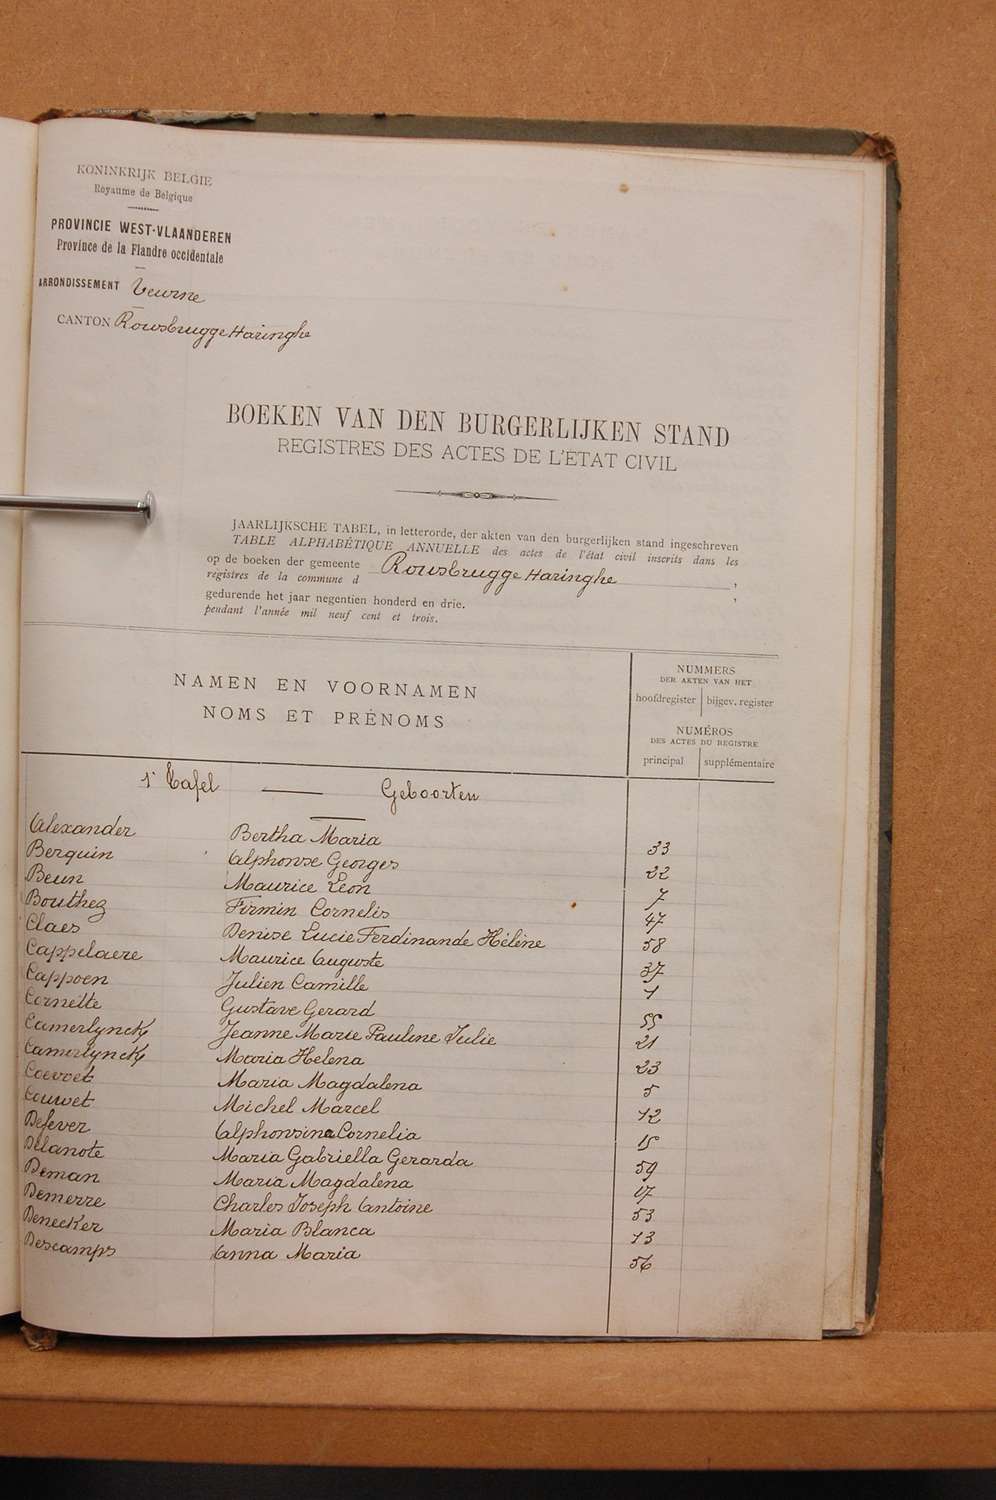 KONINKRIJK BELGIE
Royaume de Belgique
PROVINCIE WEST-VLAANDEREN
Province de la Flandre occidentale
ARRONDISSEMENT Veurne
CANTON Rousbrugge Haringhe
BOEKEN VAN DEN BURGERLIJKEN STAND
REGISTRES DES ACTES DE L'ETAT CIVIL
JAARLIJKSCHE TABEL, in letterorde, der akten van den burgerlijken stand ingeschreven
TABLE ALPHABÉTIQUE ANNUELLE des actes de l'état civil inscrits dans les
op de boeken der gemeente Rousbrugge Haringhe,
registres de la commune d
gedurende het jaar negentien honderd en drie.
pendant l'année mil neuf cent et trois.
NAMEN EN VOORNAMEN
NOMS ET PRÉNOMS
NUMMERS
DER AKTEN VAN HET
hoofdregister bijgev. register
NUMÉROS
DES ACTES DU REGISTRE
principal supplémentaire
1e Tafel — Geboorten
Alexander Bertha Maria 33
Berquin Alphonse Georges 22
Beun Maurice Leon 7
Bouthez Firmin Cornelis 47
Claes Denise Lucie Ferdinande Hélène 58
Cappelaere Maurice Auguste 37
Cappoen Julien Camille 1
Cornette Gustave Gerard 55
Camerlynck Jeanne Marie Pauline Julie 21
Camerlynck Maria Helena 23
Coevoet Maria Magdalena 5
Couwet Michel Marcel 12
Defever Alphonsina Cornelia 15
Delanote Maria Gabriella Gerarda 59
Deman Maria Magdalena 17
Demerre Charles Joseph Antoine 53
Denecker Maria Blanca 13
Descamps Anna Maria 56